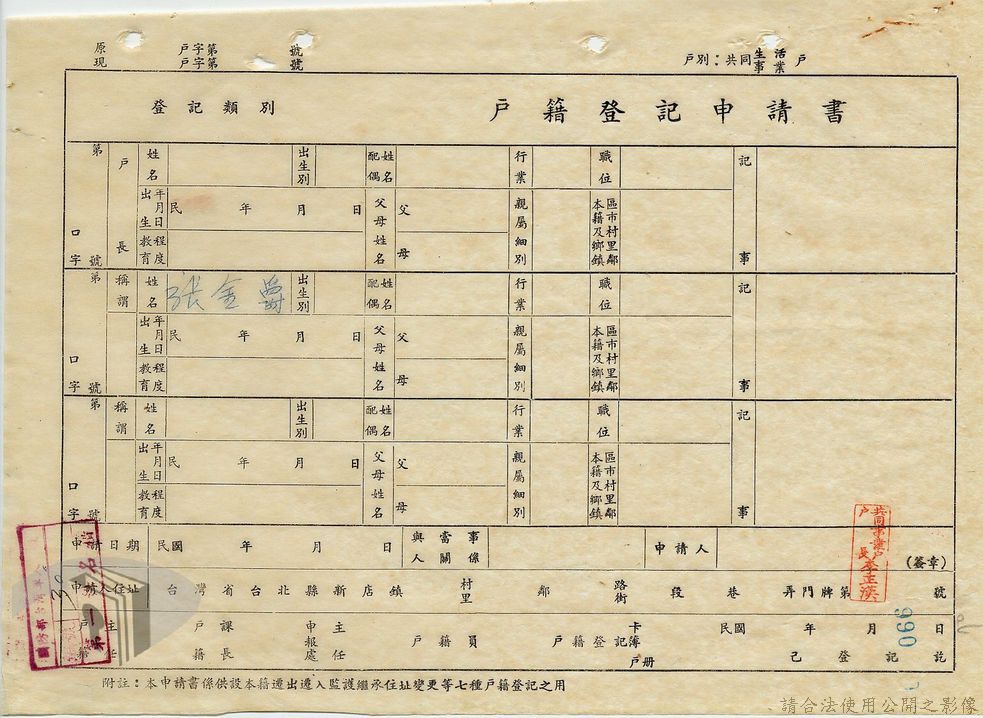 原 戶字第 號
現 戶字第 號
戶別：共同生活 事業 戶
登記類別 戶籍登記申請書
第 口 字 號 戶長 姓名 出生別 配偶姓名 行業 職位 記事
出生年月日 民 年 月 日 父母姓名 父 母 親屬細別 本籍及鄉鎮區市村里鄰
教育程度
第 口 字 號 稱謂 姓名 張金爵 出生別 配偶姓名 行業 職位 記事
出生年月日 民 年 月 日 父母姓名 父 母 親屬細別 本籍及鄉鎮區市村里鄰
教育程度
第 口 字 號 稱謂 姓名 出生別 配偶姓名 行業 職位 記事
出生年月日 民 年 月 日 父母姓名 父 母 親屬細別 本籍及鄉鎮區市村里鄰
教育程度
申請日期 民國 年 月 日 與當事人關係 申請人 (簽章)
共同事業戶
戶長
申請人住址 台灣省台北縣新店鎮 村里 鄰 路街 段 巷 弄門牌第 號
戶籍主任 戶籍課長 申報處主任 戶籍員 戶籍登記卡簿 戶册 民國 年 月 日 己登記訖
066
附註：本申請書係供設本籍遷出遷入監護繼承住址變更等七種戶籍登記之用
請合法使用公開之影像